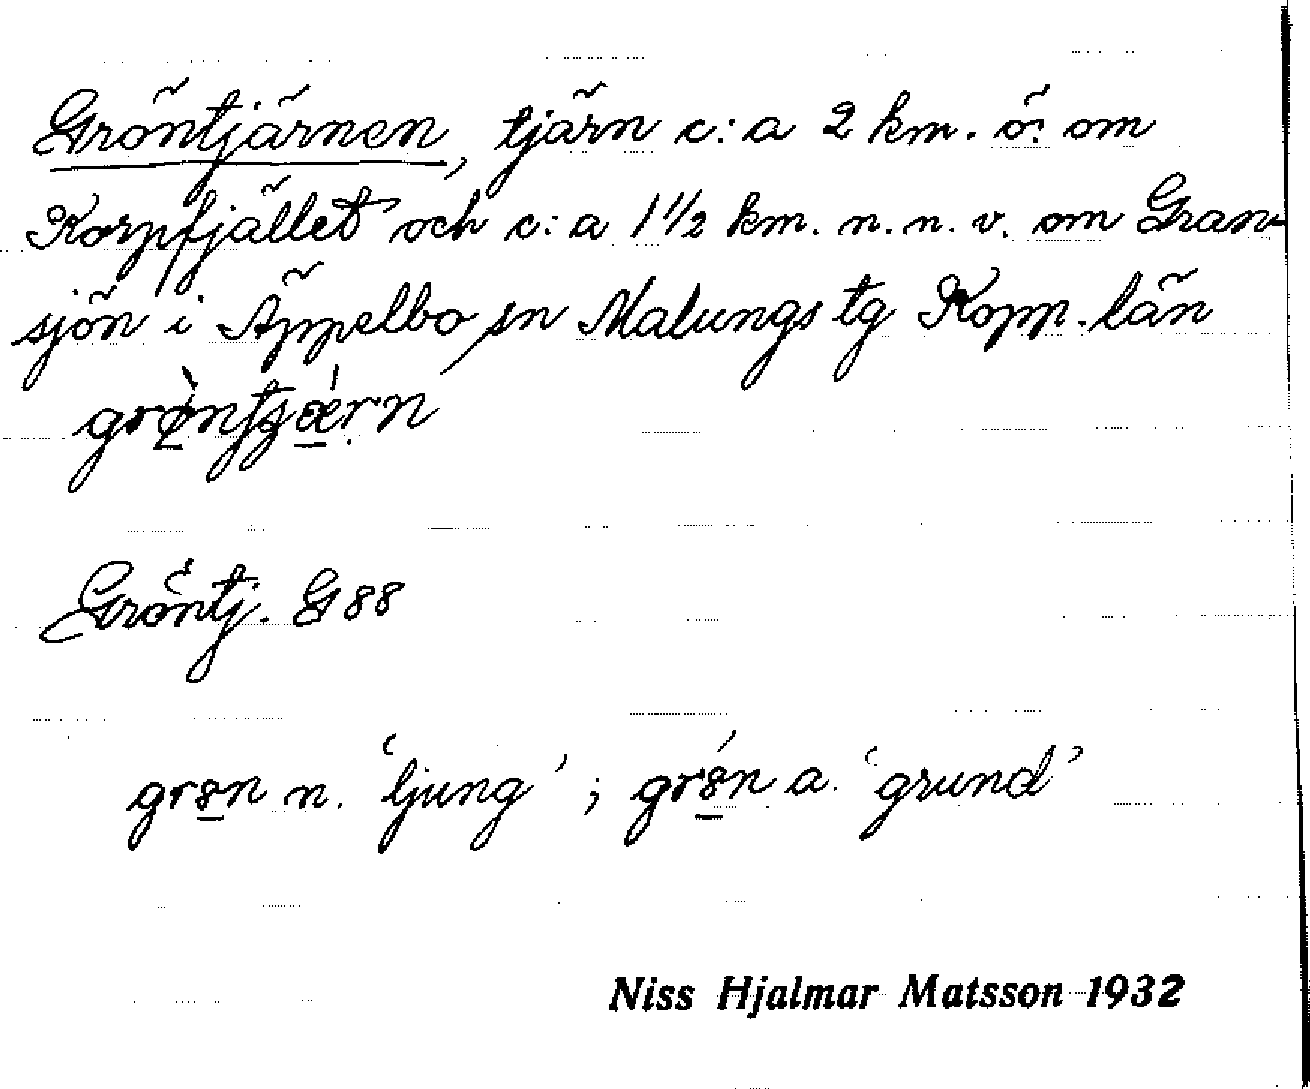 Gröntjärnen, tjärn c:a 2 km. ö. om
Korpfjället och c:a 1 1/2 km. n. n. v. om Gran-
sjön i Äppelbo sn Malungs tg Kopp. län
Gröntj. G 88
n. 'ljung'; a. 'grund'
Niss Hjalmar Matsson 1932